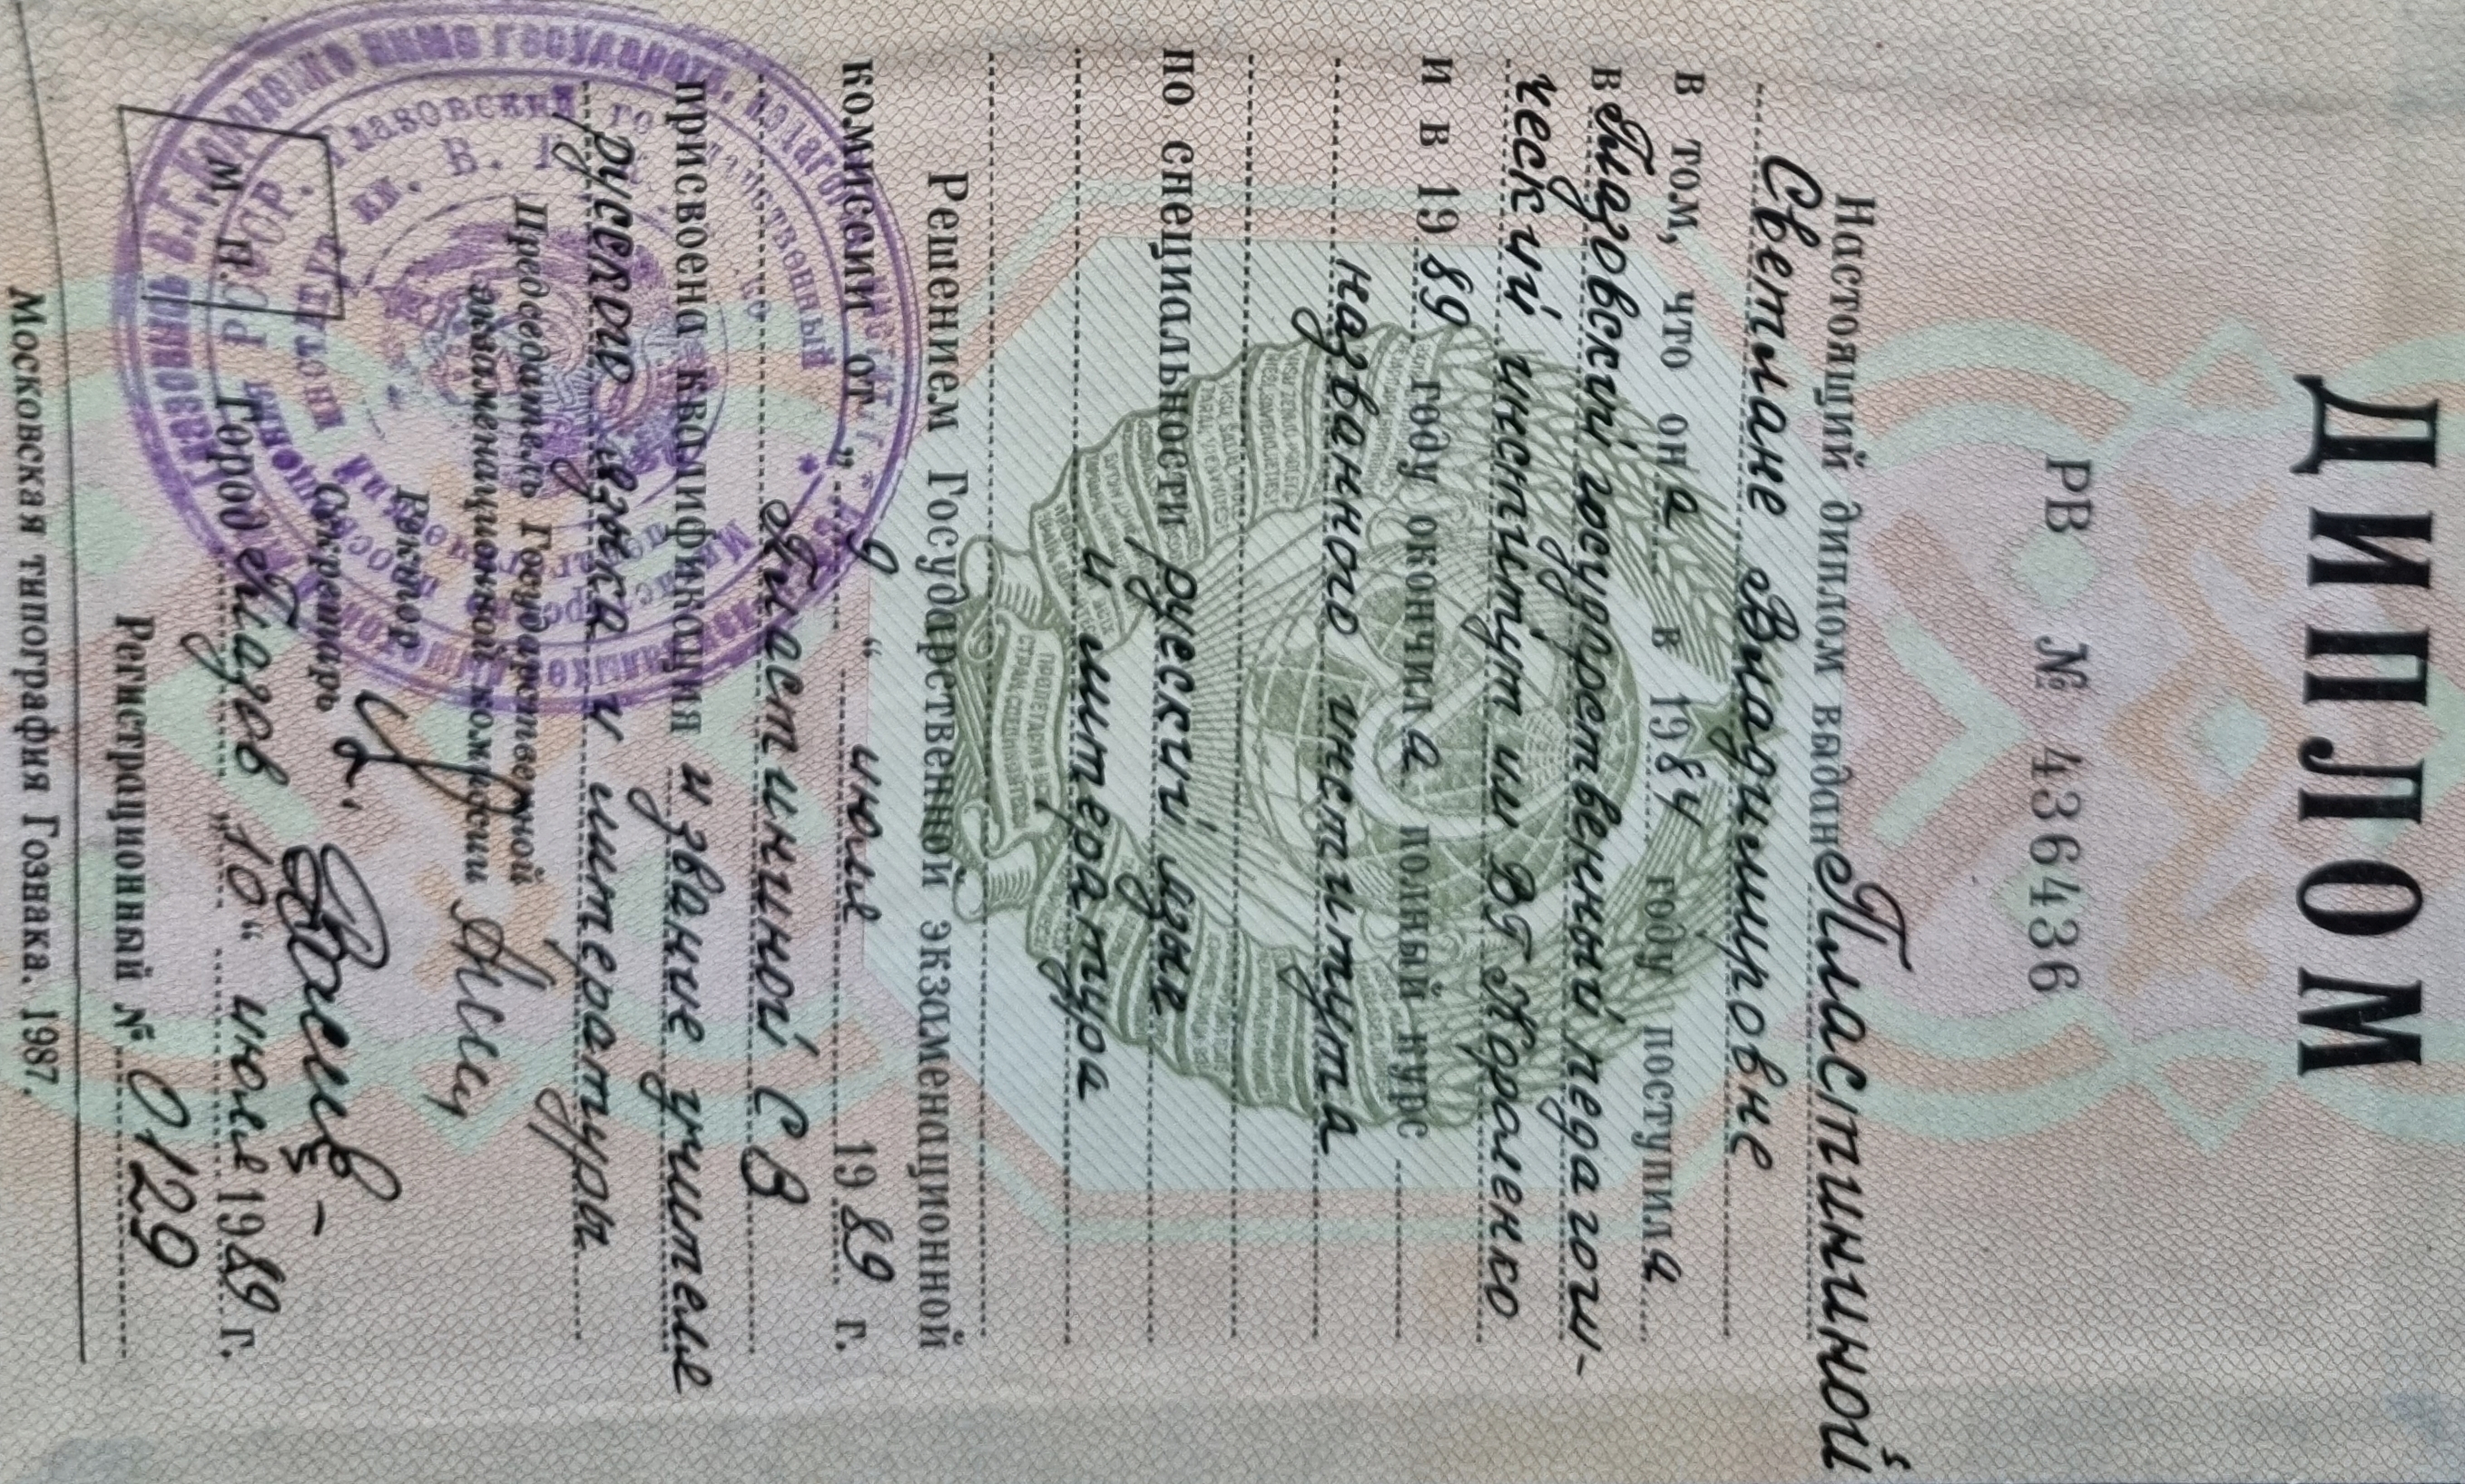 ДИПЛОМ
РВ № 436436
Настоящий диплом выдан Пластининой
Светлане Владимировне
в том, что он а в 1984 году поступила
в Глазовский государственный педагоги-
ческий институт им ВГ Короленко
и в 1989 году окончила полный курс
названного института
по специальности русский язык
и литература
Решением Государственной экзаменационной
комиссии от „ 9 “ июля 1989 г.
Пластининой С В
присвоена квалификация и звание учителя
русского языка и литературы
Председатель Государственной
экзаменационной комиссии
Ректор
Секретарь
М. П.
Город Глазов „10“ июля 1989 г.
Регистрационный № 0129
Московская типография Гознака. 1987.